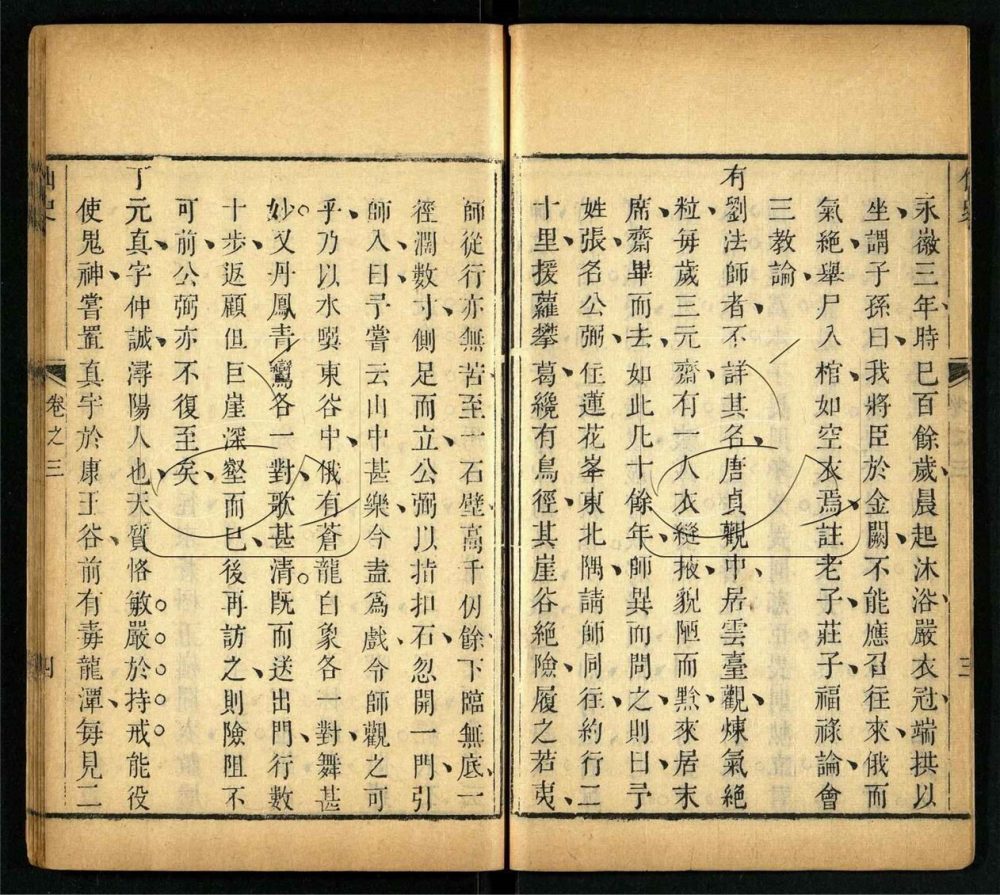 永徽三年時巳百餘歲晨起沐浴嚴衣冠端拱以
坐謂子孫曰我將臣於金闕不能應召往來俄而
氣絕舉尸入棺如空衣焉註老子莊子福祿論會
三教論
有劉法師者不詳其名唐貞觀中居雲臺觀煉氣絕
粒每歲三元齋有一人衣縫掖貌陋而黔來居末
席齋畢而去如此凡十餘年師異而問之則曰予
姓張名公弼住蓮花峯東北隅請師同往約行二
十里援蘿攀葛纔有鳥徑其崖谷絕險履之若夷
師從行亦無苦至一石壁高千仞餘下臨無底一
徑濶數寸側足而立公弼以指扣石忽開一門引
師入曰予嘗云山中甚樂今盍爲戲令師觀之可
乎乃以水噀東谷中俄有蒼龍白象各一對舞甚
妙又丹鳳青鸞各一對歌甚清既而送出門行數
十步返顧但巨崖深壑而巳後再訪之則險阻不
可前公弼亦不復至矣
丁元真字仲誠潯陽人也天質恪敏嚴於持戒能役
使鬼神嘗置真宇於康王谷前有毒龍潭每見二
卷之三
四
三